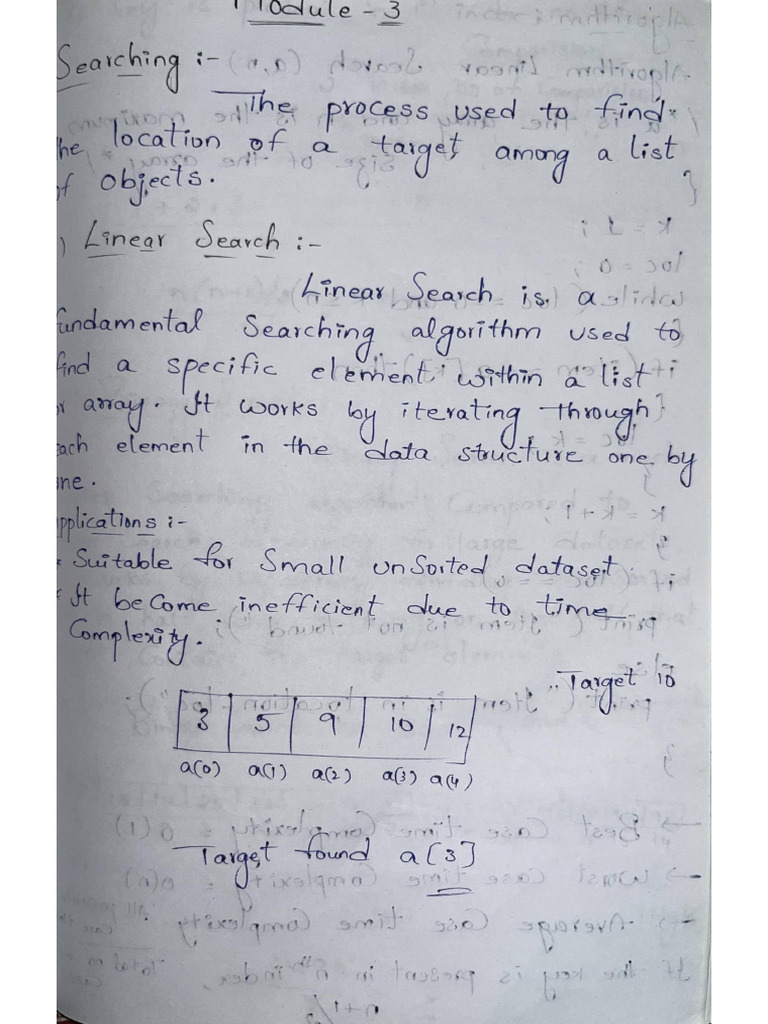 Module - 3
Searching :-
The process used to find
the location of a target among a list
of objects.
) Linear Search :-
Linear Search is a
fundamental Searching algorithm used to
find a specific element within a list
or array. It works by iterating through
each element in the data structure one by
one.
Applications :-
* Suitable for Small unSorted dataset.
* It become inefficient due to time
Complexity.
Target 10
3 5 9 10 12
a(0) a(1) a(2) a(3) a(4)
Target found a[3]